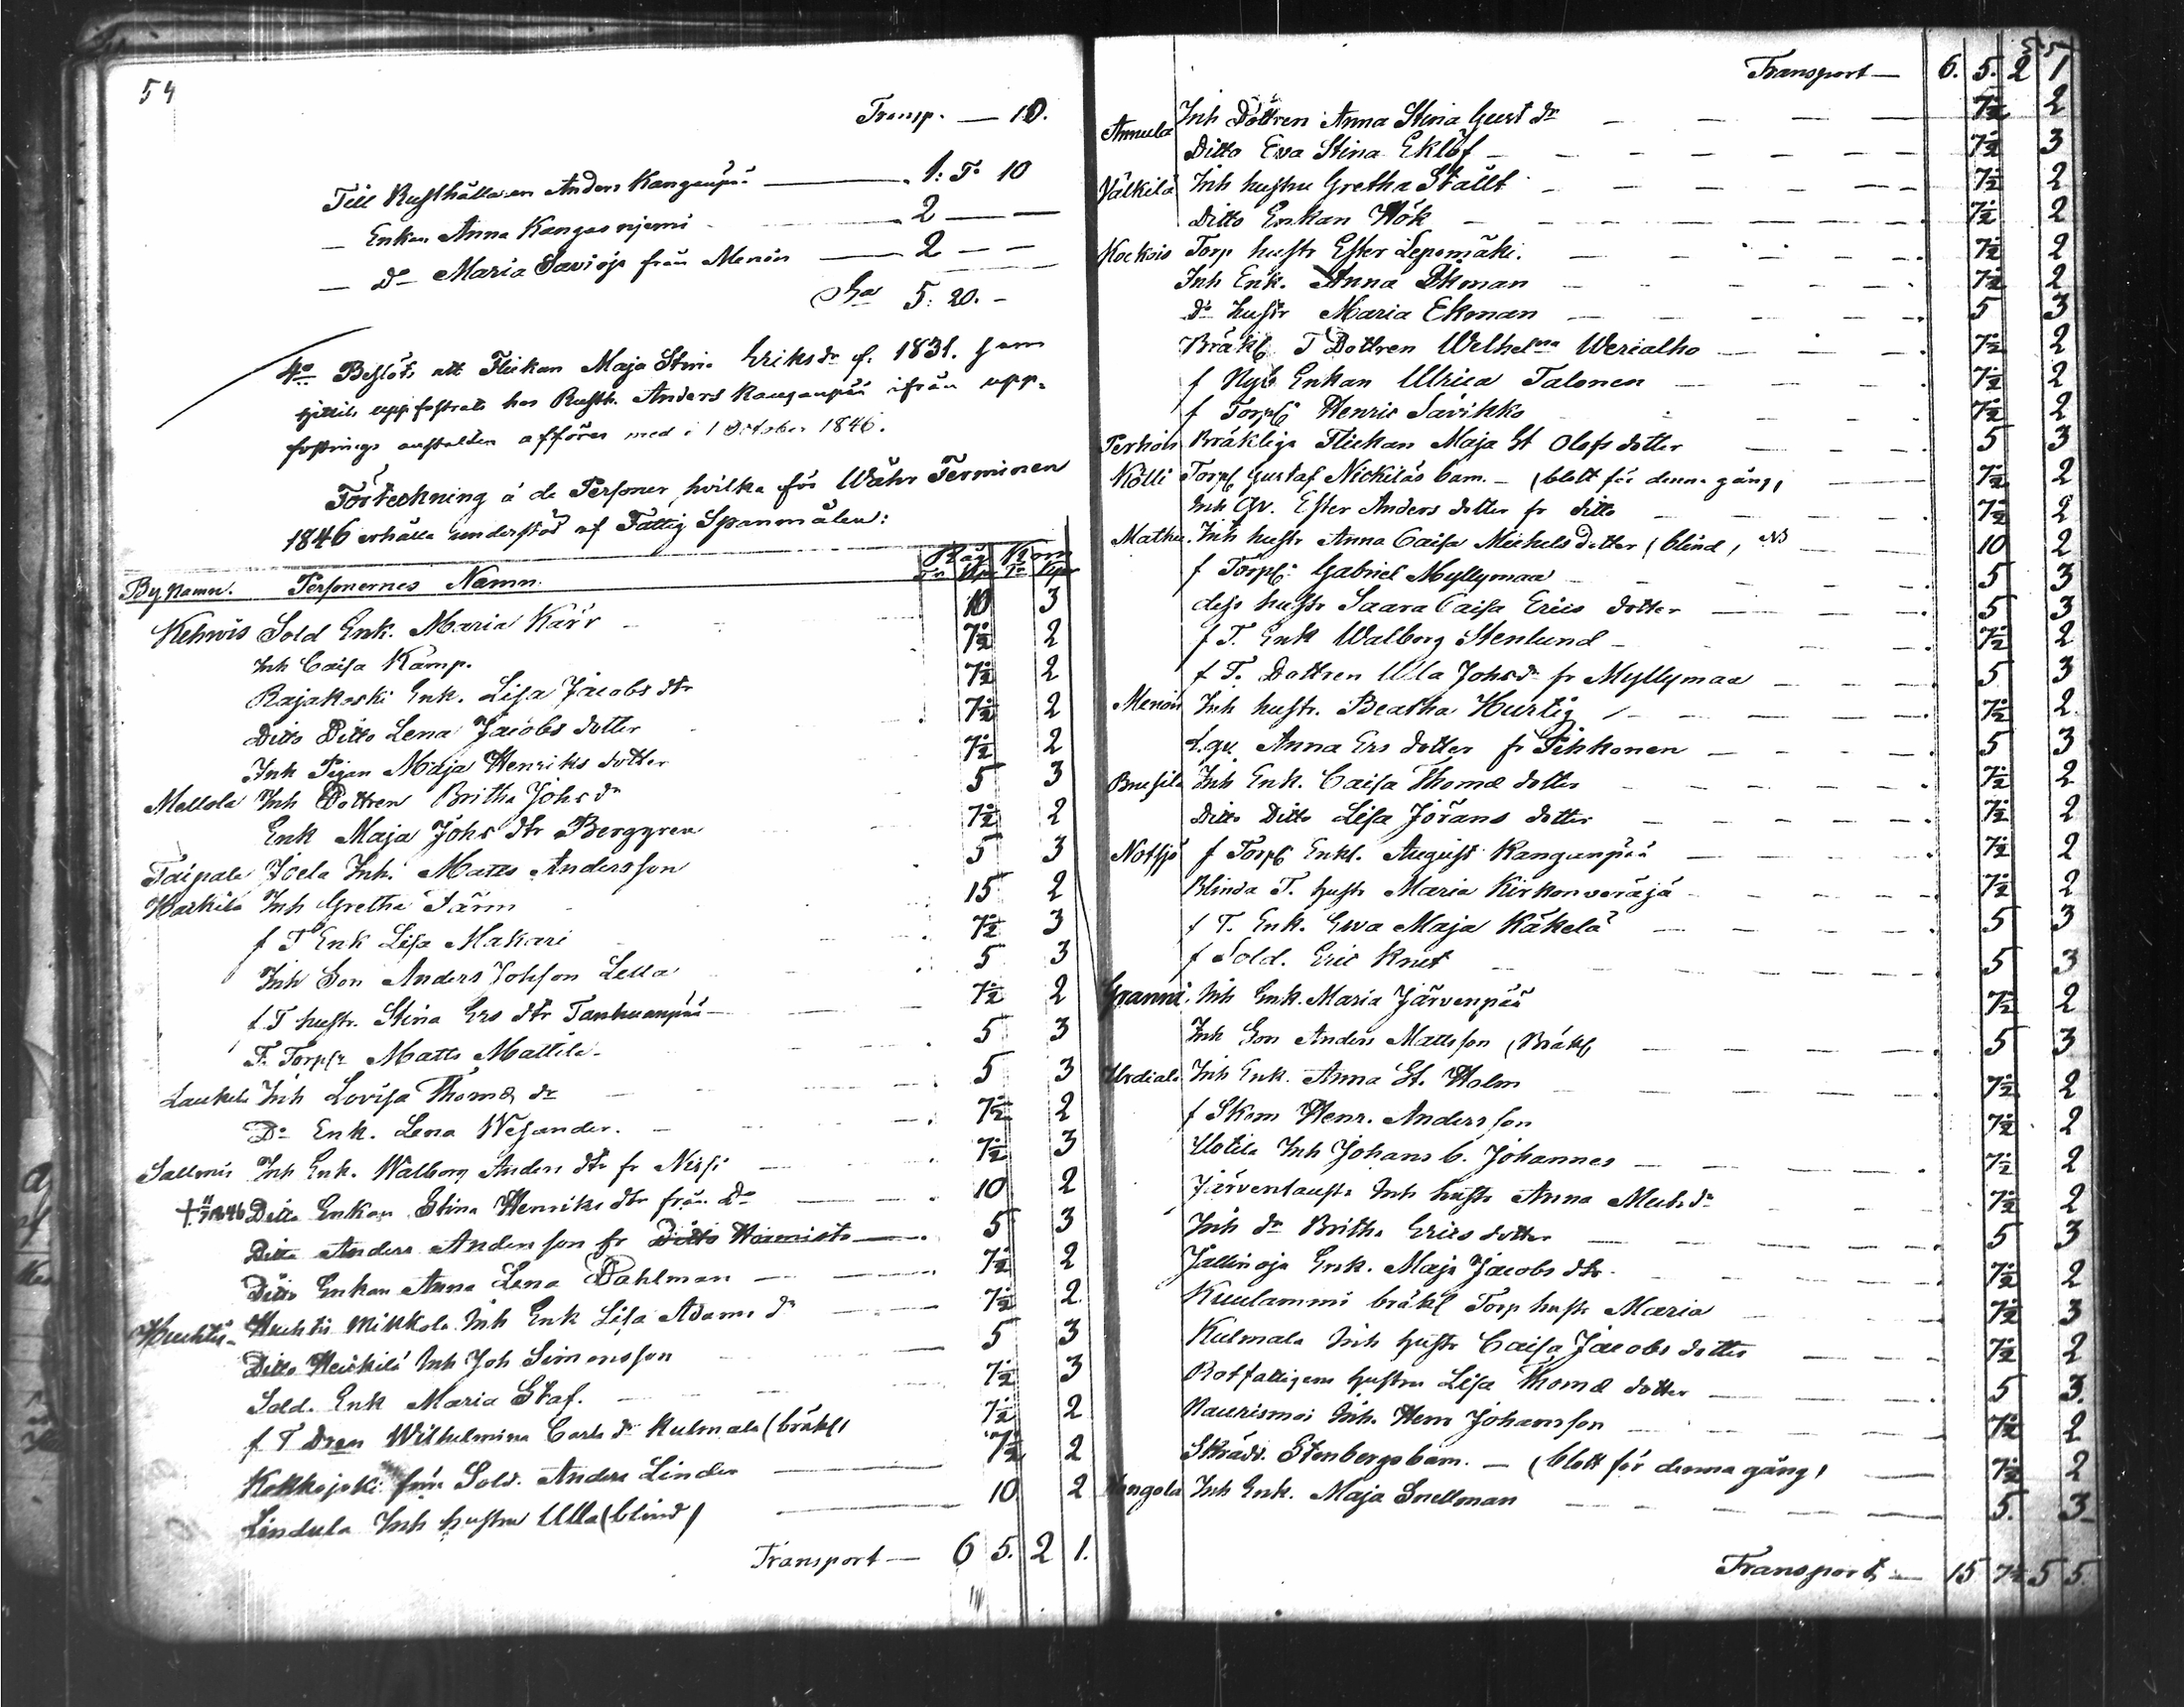 54
Transp. — 10.
Till Rusthållaren Anders Kangaupää — 1: T. 10
— Enkan Anna Kangasnjemi — 2 — —
— Do Maria Savioja från Menois — 2 — —
Sa 5. 20. —
4o Beslöts att Flickan Maja Stina Eriksdr f. 1831. som
hittils uppfostrats hos Rusth. Anders Kangaupää ifrån upp-
fostrings anstalten afföres med i 1 October 1846.
Förteckning å de Personer hvilka för Wåhr Terminen
1846 erhålla understöd af Fattig Spanmålen:
By Namn. Personernes Namn. Råg Korn
Tr Kpr Tr Kpr
Kehwis Sold Enk. Maria Kärr 10 3
Inh Caisa Kämp. 7½ 2
Rajakoski Enk. Lisa Jacobs dtr 7½ 2
Ditto Ditto Lena Jacobs dotter 7½ 2
Inh Pigan Maja Henriks dotter 7½ 2
Mellola Inh Dottren Britha Johs dr 5 3
Enk Maja Johs dtr Berggren 7½ 2
Taipale Joela Inh. Matts Andersson 5 3
Warkila Inh Gretha Färm 15 2
f T Enk Lisa Makari 7½ 3
Inh Son Anders Johsson Lella 5 3
f.T hustr. Stina Ers dtr Tanhuanpää 7½ 2
F. Torpr Matts Mattila 5 3
Laukela Inh Lovisa Thomæ dr 5 3
Do Enk. Lena Wesander. 7½ 2
Salmis Inh Enk. Walborg Anders dtr fr Nissi 7½ 3
Ditto Enkan Stina Henriks dtr från Do 10 2
Ditto Anders Andersson fr Ditto 5 3
Ditto Enkan Anna Lena Dahlman 7½ 2
Huchtis Huchtis Mikkola Inh Enk Lisa Adams dr 7½ 2
Ditto Heickilä Inh Joh Simonsson 5 3
Sold. Enk Maria Staf. 7½ 3
f T Dren Wilhelmina Carls dr Kulmala (bräkl) 7½ 2
Kokkojoki från Sold. Anders Linder 7½ 2
Lindula Inh hustru Ulla (blind) 10 2
Transport — 6 5. 2 1.
55
Transport — 6. 5. 2 1
Annula Inh Dottren Anna Stina Gust dr 7½ 2
Ditto Ewa Stina Eklöf 7½ 3
Välkilä Inh hustru Gretha Ställt 7½ 2
Ditto Enkan Hök 7½ 2
Kockois Torp hustr Ester Lepomäki. 7½ 2
Inh Enk. Anna Ekman 7½ 2
Do hustr Maria Ekman 5 3
Bräkl. T Dottren Wilhelma Werialho 7½ 2
f Nyb Enkan Ulrica Talonen 7½ 2
f Torpr Henric Savikko 7½ 2
Perhois Bräkliga Flickan Maja St Olofs dotter 5 3
Kölli Torpr Gustaf Nickiläs barn. — (blott för denna gång) 7½ 2
Inh Qv. Ester Anders dotter fr ditto 7½ 2
Mathu Inh hustr Anna Caisa Michels dotter (blind) NB 10 2
f Torpr. Gabriel Myllymaa 5 3
dess hustr Saara Caisa Erics dotter 5 3
f T. Enk Walborg Stenlund 7½ 2
f T. Dottren Ulla Johsdr fr Myllymaa 5 3
Menois Inh hustr. Beatha Hurtig 7½ 2
L.qv. Anna Ers dotter fr Pihkonen 5 3
Inh Enk. Caisa Thomæ dotter 7½ 2
Ditto Ditto Lisa Jörans dotter 7½ 2
Notsjö f Torpr Enkl. August Kangaupää 7½ 2
Blinda T. hustr Maria Kirkonveräjä 7½ 2
f T. Enk. Ewa Maja Käkelä 5 3
f Sold. Eric Knut 5 3
Granni Inh Enk. Maria Järvenpää 7½ 2
Inh Son Anders Mattsson (Bräkl) 5 3
Urdiala Inh Enk. Anna St. Holm 7½ 2
f Skom Henr. Andersson 7½ 2
Uotila Inh Johans b. Johannes 7½ 2
Järventausta Inh hustr Anna Mich dr 7½ 2
Inh dr Britha Erics dotter 5 3
Jallinoja Enk. Maja Jacobs dtr 7½ 2
Kuulammi bräkl Torp hustr Maria 7½ 3
Kulmala Inh hustr Caisa Jacobs dotter 7½ 2
Rotfattigen hustru Lisa Thomæ dotter 5 3.
Naurismoi Inh. Henr Johansson 7½ 2
Skrädd. Stenbergs barn. — (blott för denna gång) 7½ 2
Hongola Inh Enk. Maja Snellman 5. 3
Transport — 15 7½ 5 5.